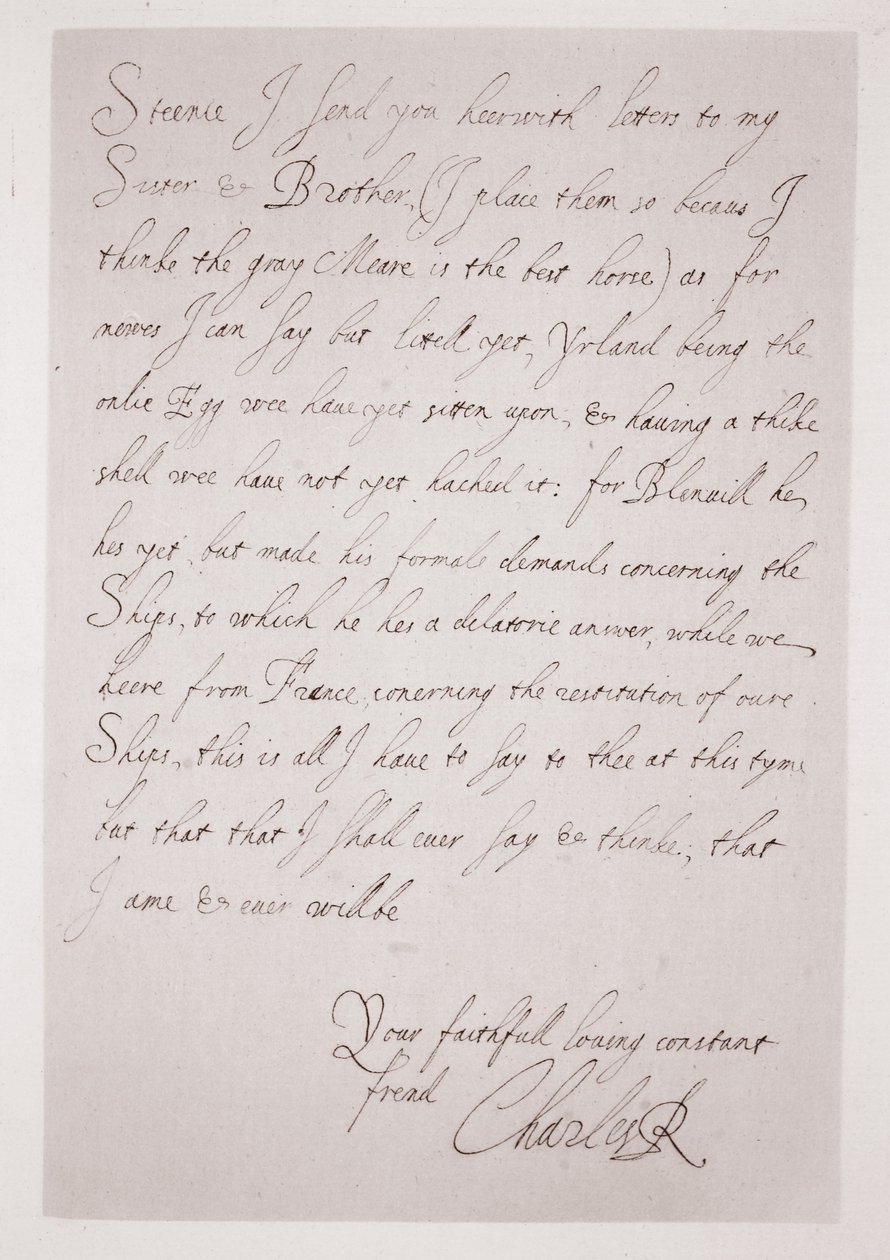 Steenie I send you heerwith letters to my
Sister & Brother, (I place them so becaus I
thinke the gray Meare is the best horse) as for
newes I can say but littell yet, Yrland being the
onlie Egg wee have yet sitten upon, & having a thike
shell wee have not yet hached it: for Blenvill he
hes yet but made his formale demands concerning the
Ships, to which he hes a delatorie answer, while we
heere from France, conerning the restitution of oure
Ships, this is all I have to say to thee at this tyme
but that that I shall ever say & thinke; that
I ame & ever will be
Your faithfull loving constant
frend Charles R.